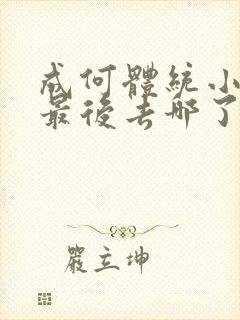 成何體統小
最後去哪了
嚴立坤